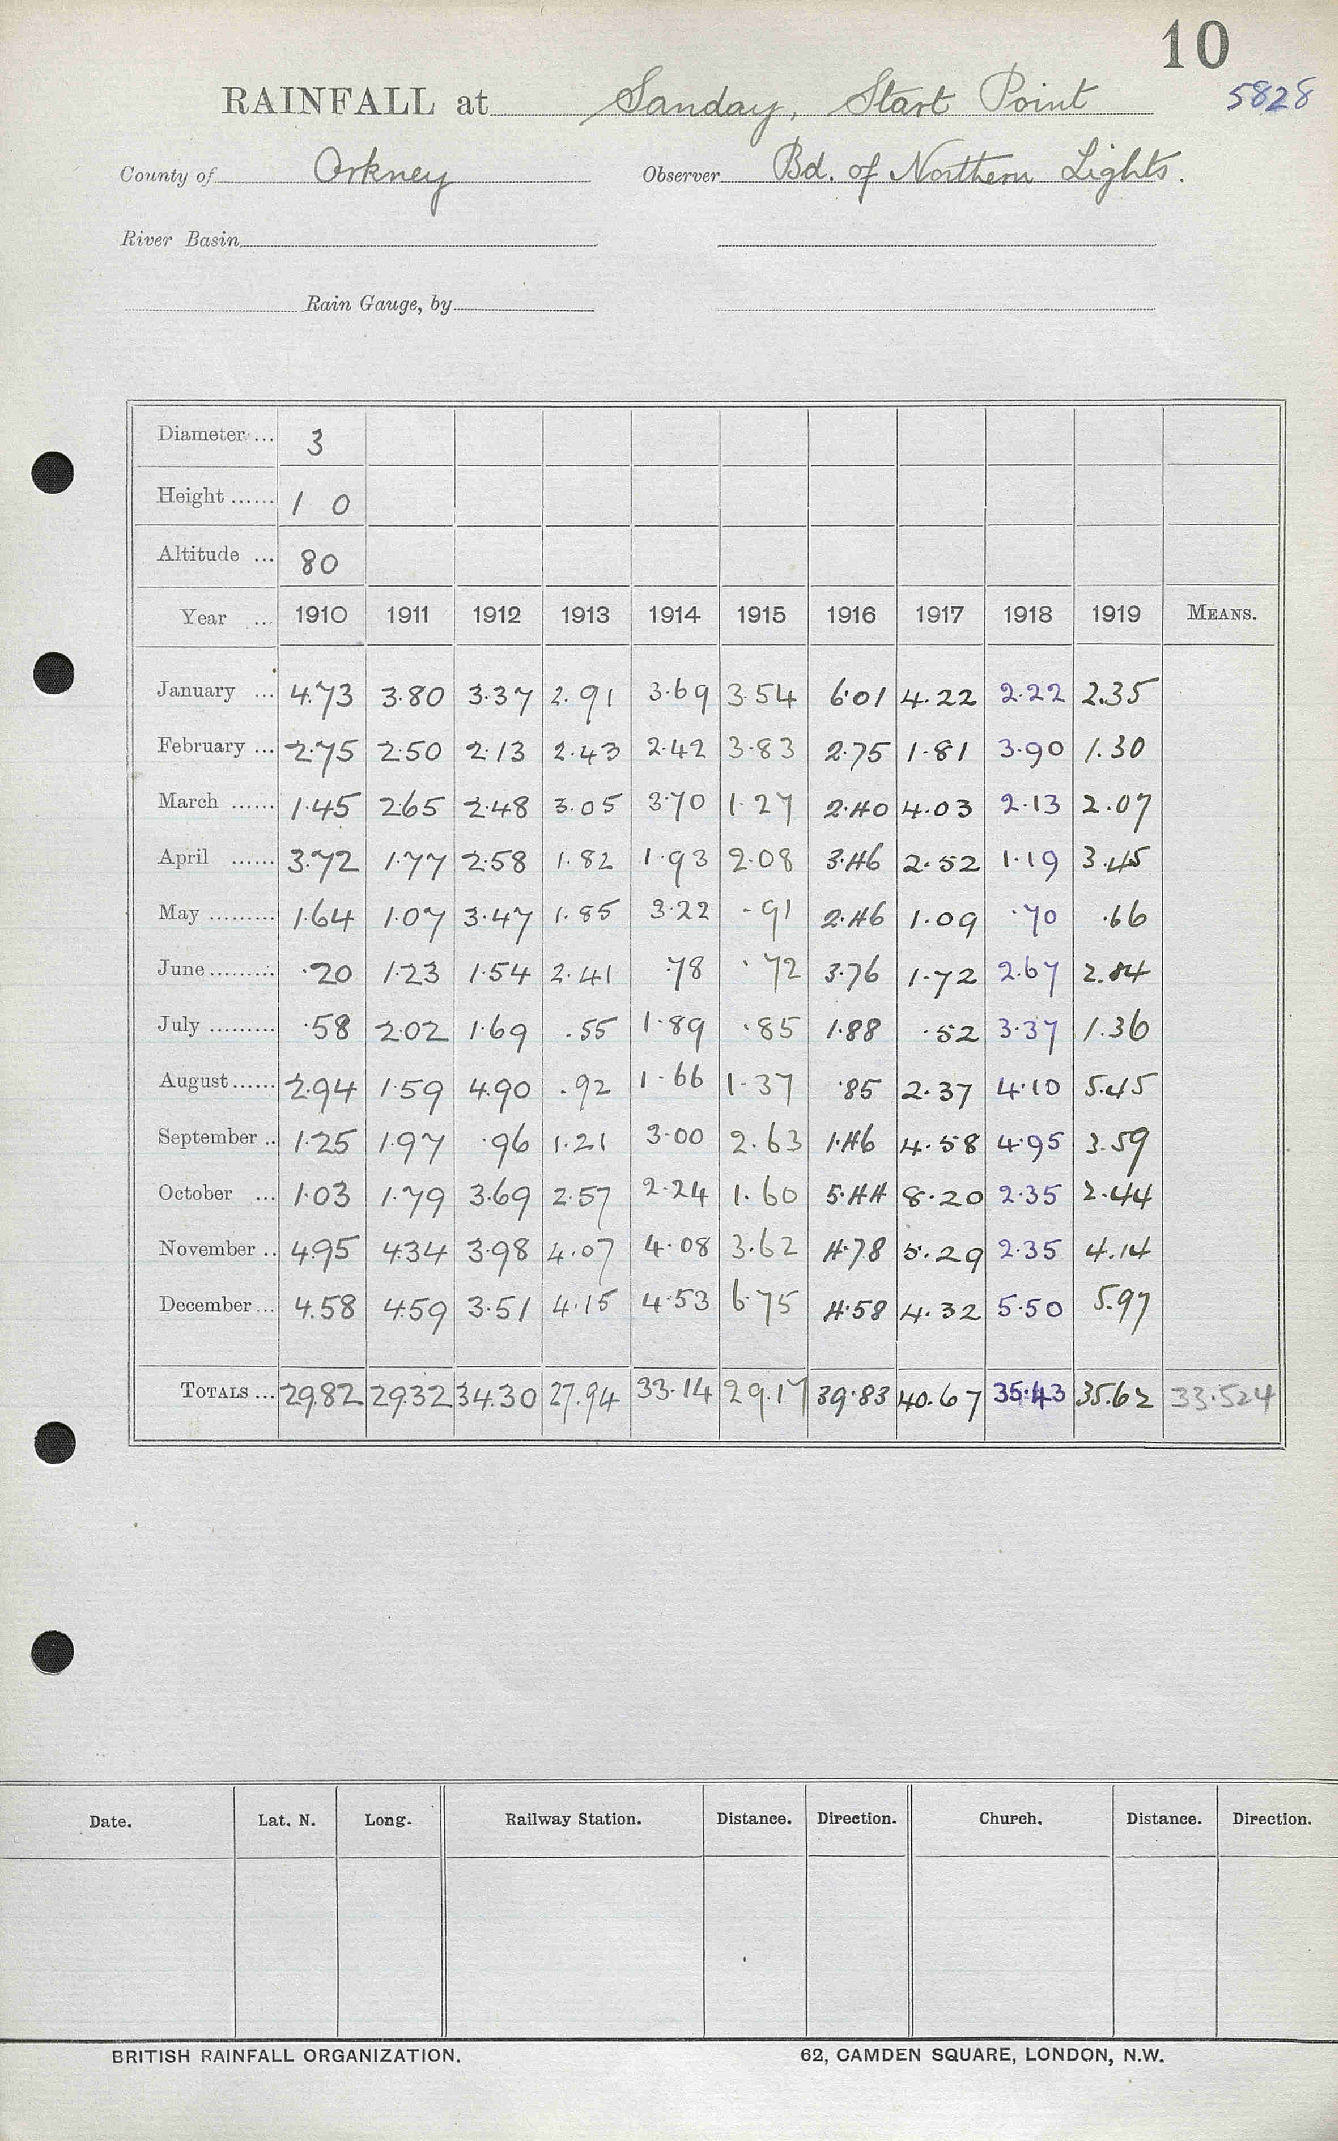 10
RAINFALL at Sanday, Start Point 5828
County of Orkney Observer Bd. of Northern Lights.
River Basin
Rain Gauge, by
Diameter ... 3
Height ...... 1 0
Altitude ... 80
Year ... 1910 1911 1912 1913 1914 1915 1916 1917 1918 1919 MEANS.
January ... 4.73 3.80 3.37 2.91 3.69 3.54 6.01 4.22 2.22 2.35
February ... 2.75 2.50 2.13 2.43 2.42 3.83 2.75 1.81 3.90 1.30
March ...... 1.45 2.65 2.48 3.05 3.70 1.27 2.40 4.03 2.13 2.07
April ...... 3.72 1.77 2.58 1.82 1.93 2.08 3.46 2.52 1.19 3.45
May ......... 1.64 1.07 3.47 1.85 3.22 .91 2.46 1.09 .70 .66
June ......... .20 1.23 1.54 2.41 .78 .72 3.76 1.72 2.67 2.84
July ......... .58 2.02 1.69 .55 1.89 .85 1.88 .52 3.37 1.36
August ...... 2.94 1.59 4.90 .92 1.66 1.37 .85 2.37 4.10 5.45
September .. 1.25 1.97 .96 1.21 3.00 2.63 1.46 4.58 4.95 3.59
October ... 1.03 1.79 3.69 2.57 2.24 1.60 5.44 8.20 2.35 2.44
November .. 4.95 4.34 3.98 4.07 4.08 3.62 4.78 5.29 2.35 4.14
December ... 4.58 4.59 3.51 4.15 4.53 6.75 4.58 4.32 5.50 5.97
TOTALS ... 29.82 29.32 34.30 27.94 33.14 29.17 39.83 40.67 35.43 35.62 33.524
Date. Lat. N. Long. Railway Station. Distance. Direction. Church. Distance. Direction.
BRITISH RAINFALL ORGANIZATION. 62, CAMDEN SQUARE, LONDON, N.W.